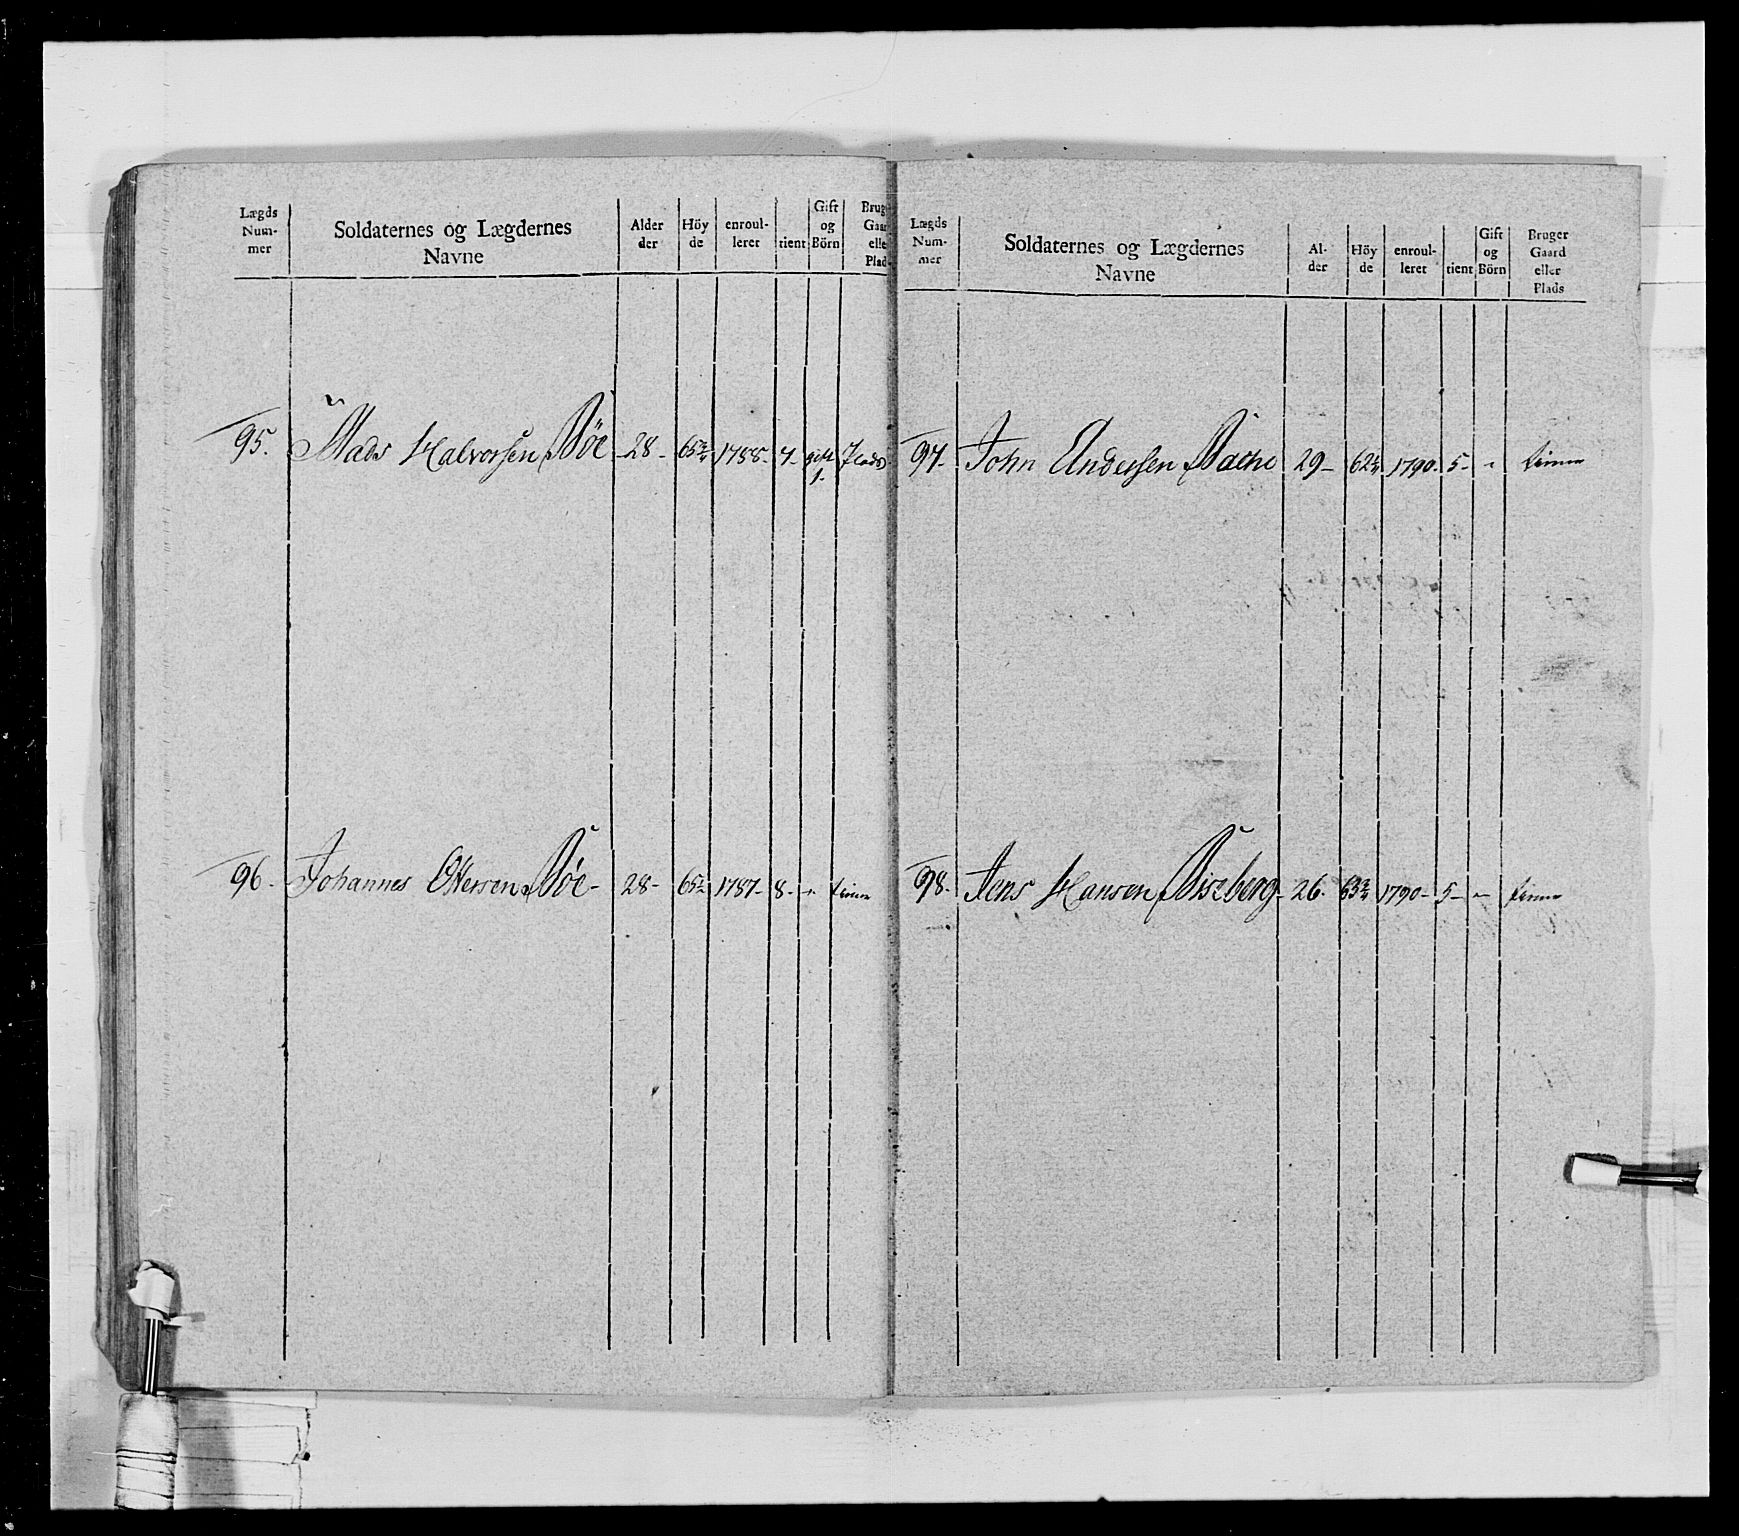 Lægds Num- mer | Soldaternes og Lægdernes Navne | Alder der | Höy de | enroul- leret | tient | Gift og Börn | Brug Gaar elle Plad
95. Mads Halvorsen Bøe 28- 65 3/4 1788- 7- gift 1- Plads
96. Johannes Ottersen Bøe- 28- 65 1787- 8- - tiener
Lægds Num- mer | Soldaternes og Lægdernes Navne | Al- der | Höy de | enroul- leret | tient | Gift og Börn | Bruger Gaard eller Plads
97. John Andersen Bache 29- 62 1790- 5- - tiener
98. Jens Hansen Biseberg- 26- 63 1790- 5- - tiener